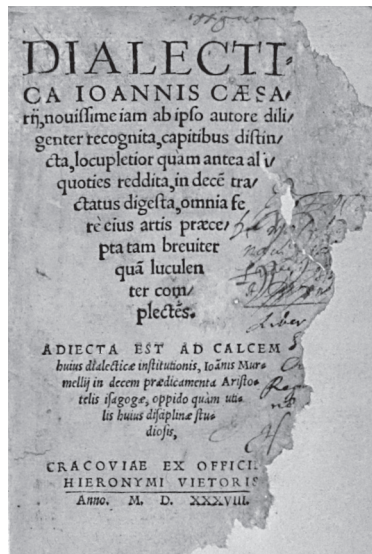 DIALECTI-
CA IOANNIS CÆSA/
rij, nouissime iam ab ipso autore dili/
genter recognita, capitibus distin/
cta, locupletior quàm antea ali
quoties reddita, in decē tra/
ctatus digesta, omnia fe
rè eius artis præce/
pta tam breuiter
quā luculen
ter com/
plectēs.
ADIECTA EST AD CALCEM
huius dialecticæ institutionis, Ioānis Mur-
mellij in decem prædicamenta Aristo-
telis isagoge, oppido quàm uti-
lis huius disciplinæ stu-
diosis,
Liber
CRACOVIAE EX OFFICI
HIERONYMI VIETORIS
Anno. M. D. XXXVIII.